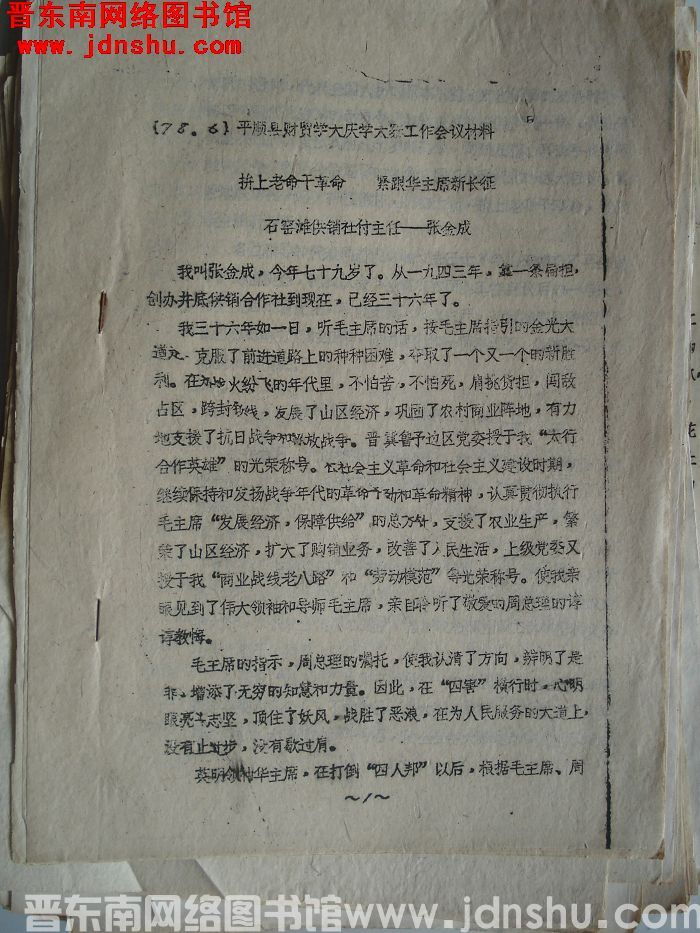 晋东南网络图书馆
www.jdnshu.com
(78.6)平顺县财贸学大庆学大寨工作会议材料
拚上老命干革命 紧跟华主席新长征
石窑滩供销社付主任——张金成
我叫张金成，今年七十九岁了。从一九四三年，靠一条扁担，
创办井底供销合作社到现在，已经三十六年了。
我三十六年如一日，听毛主席的话，按毛主席指引的金光大
道走，克服了前进道路上的种种困难，夺取了一个又一个的新胜
利。在火纷飞的年代里，不怕苦，不怕死，肩挑货担，闯敌
占区，跨封锁线，发展了山区经济，巩固了农村商业阵地，有力
地支援了抗日战争和解放战争。晋冀鲁予边区党委授于我“太行
合作英雄”的光荣称号。在社会主义革命和社会主义建设时期，
继续保持和发扬战争年代的革命干劲和革命精神，认真贯彻执行
毛主席“发展经济，保障供给”的总方针，支援了农业生产，繁
荣了山区经济，扩大了购销业务，改善了人民生活，上级党委又
授于我“商业战线老八路”和“劳动模范”等光荣称号。使我亲
眼见到了伟大领袖和导师毛主席，亲自聆听了敬爱的周总理的谆
谆教悔。
毛主席的指示，周总理的嘱托，使我认清了方向，辨明了是
非，增添了无穷的知慧和力量。因此，在“四害”横行时，心明
眼亮斗志坚，顶住了妖风，战胜了恶浪，在为人民服务的大道上，
没有止过步，没有歇过肩。
英明领袖华主席，在打倒“四人邦”以后，根据毛主席、周
～1～
晋东南网络图书馆www.jdnshu.com